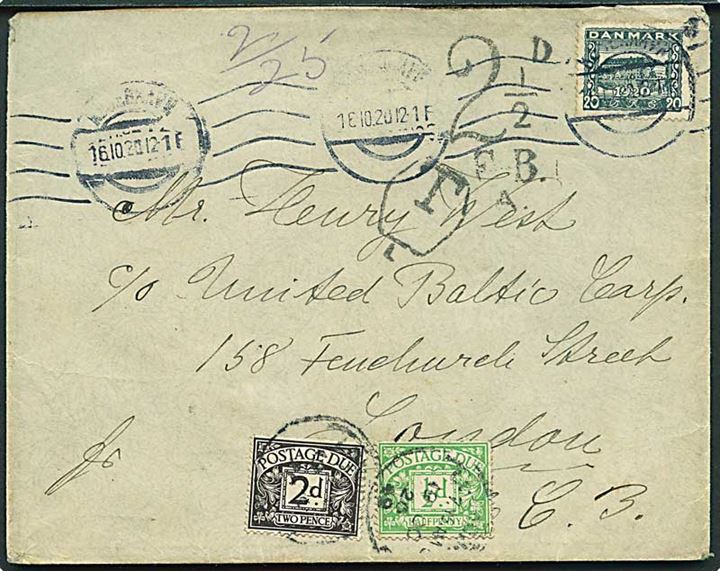 2/25
DANMARK
1920
20 20
KJØBENHAVN
16.10.20 12-1 E
16.10.20 12-1 E
2 1/2 D
F.B.
A
T
Mr. Henry West
c/o United Baltic Corp.
158 Fenchurch Street
London
E. C. 3.
POSTAGE DUE
2d
TWO PENCE
POSTAGE DUE
½d
HALFPENNY